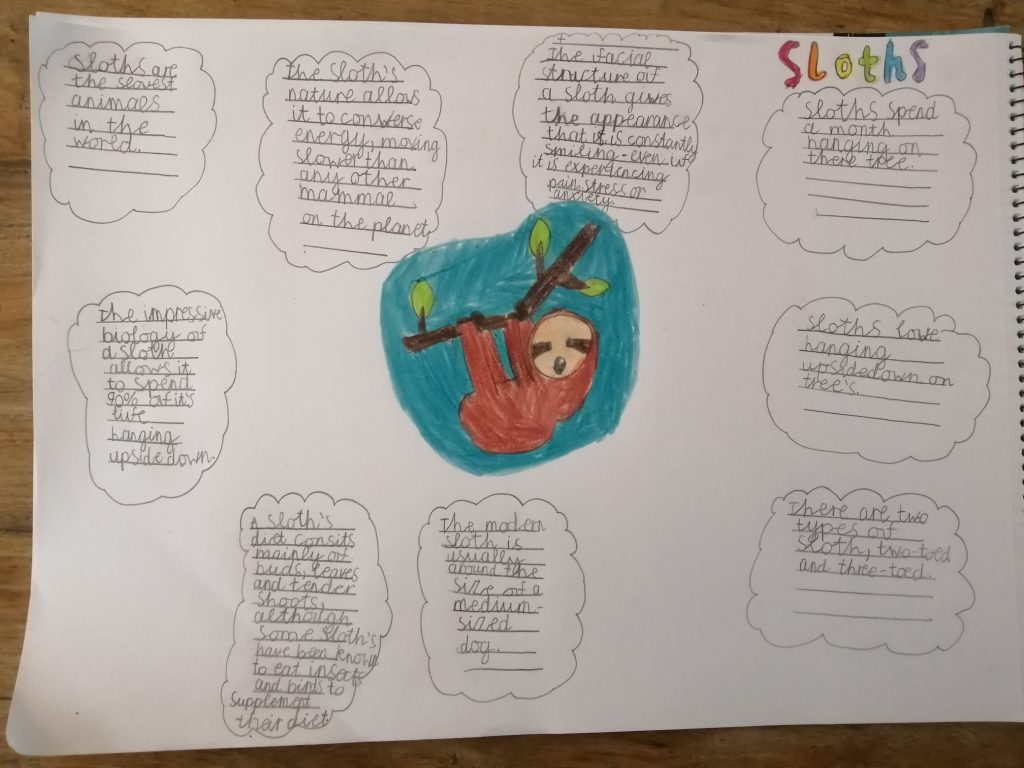 Sloths
Sloths are
the slowest
animals
in the
world.
The sloth's
nature allows
it to converse
energy, moving
slower than
any other
mammal
on the planet
The facial
structure of
a sloth gives
the appearance
that it is constantly
smiling - even if
it is experiencing
pain, stress or
anxiety.
Sloths spend
a month
hanging on
there tree.
The impressive
biology of
a sloth
allows it
to spend
90% of it's
life
hanging
upsidedown.
Sloths love
hanging
upsidedown on
tree's.
A sloth's
diet consits
mainly of
buds, leaves
and tender
shoots,
although
some sloth's
have been known
to eat insects
and birds to
supplement
their diet
The modern
sloth is
usually
around the
size of a
medium-
sized
dog.
There are two
types of
sloth, two-toed
and three-toed.